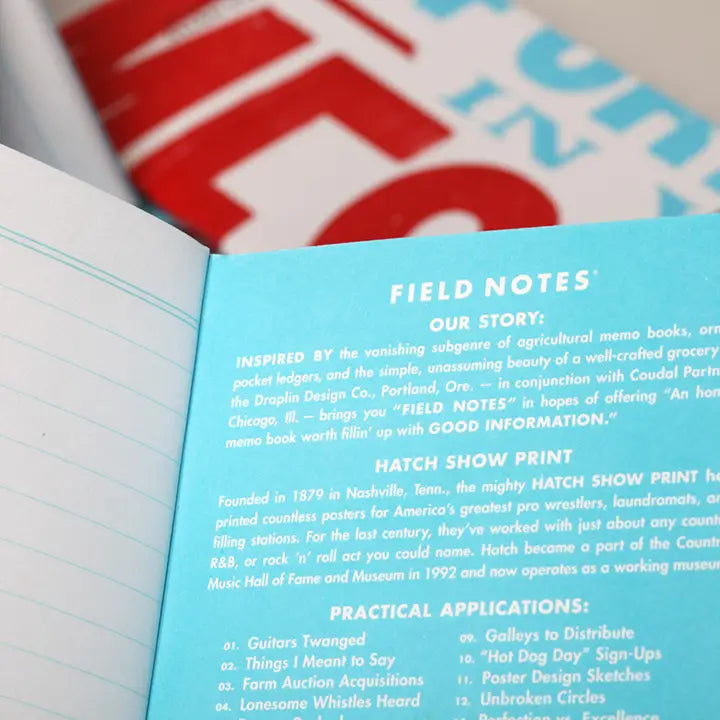 IN
FIELD NOTES
OUR STORY:
INSPIRED BY the vanishing subgenre of agricultural memo books,
pocket ledgers, and the simple, unassuming beauty of a well-crafted grocery
the Draplin Design Co., Portland, Ore. — in conjunction with Coudal
Chicago, Ill. — brings you "FIELD NOTES" in hopes of offering "An
memo book worth fillin' up with GOOD INFORMATION."
HATCH SHOW PRINT
Founded in 1879 in Nashville, Tenn., the mighty HATCH SHOW PRINT
printed countless posters for America's greatest pro wrestlers, laundromats,
filling stations. For the last century, they've worked with just about any
R&B, or rock 'n' roll act you could name. Hatch became a part of the
Music Hall of Fame and Museum in 1992 and now operates as a working
PRACTICAL APPLICATIONS:
01. Guitars Twanged
02. Things I Meant to Say
03. Farm Auction Acquisitions
04. Lonesome Whistles Heard
09. Galleys to Distribute
10. "Hot Dog Day" Sign-Ups
11. Poster Design Sketches
12. Unbroken Circles
Perfection vs. Excellence